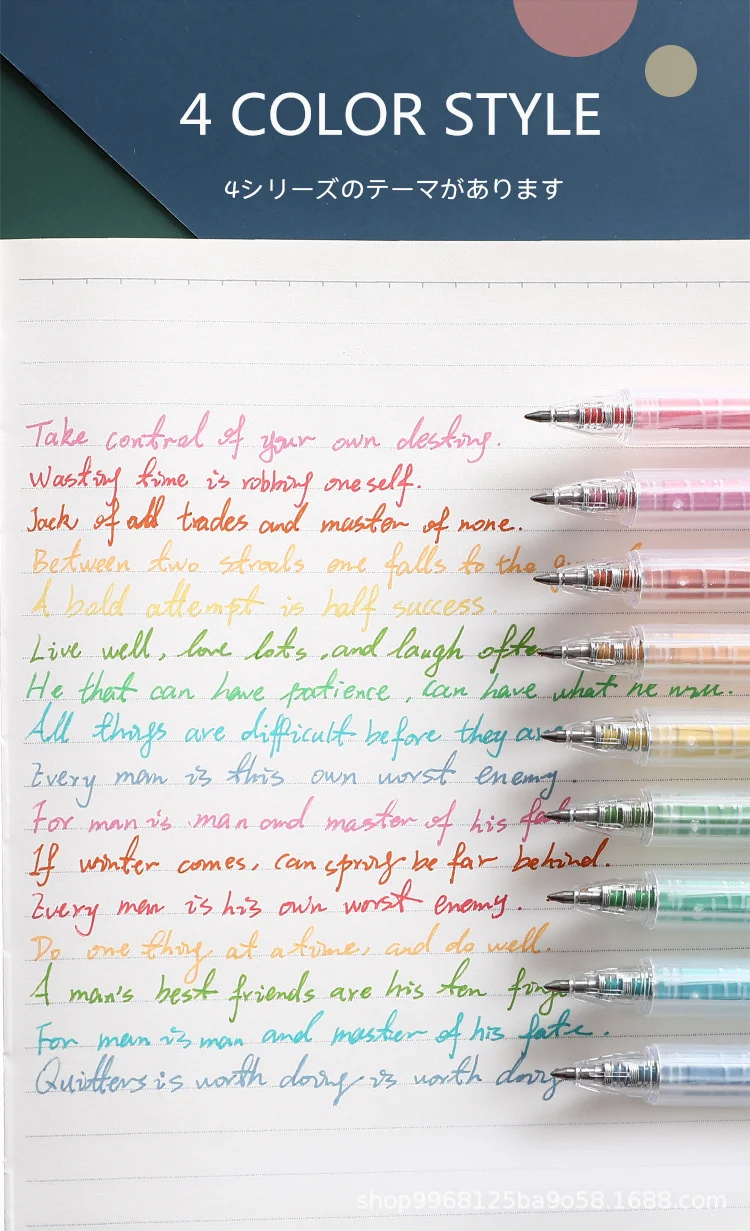 4 COLOR STYLE
4シリーズのテーマがあります
Take control of your own destiny.
Wasting time is robbing oneself.
Jack of all trades and master of none.
Between two strools one falls to the
A bold attempt is half success.
Live well, love lots, and laugh ofte
He that can have patience, can have what he
All things are difficult before they are
Every man is this own worst enemy.
For man is man and master of his
If winter comes, can spring be far behind.
Every man is his own worst enemy.
Do one thing at a time, and do well.
A man's best friends are his ten
For man is man and master of his fate.
Quitters is worth doing is worth doing
shop9968125ba9o58.1688.com